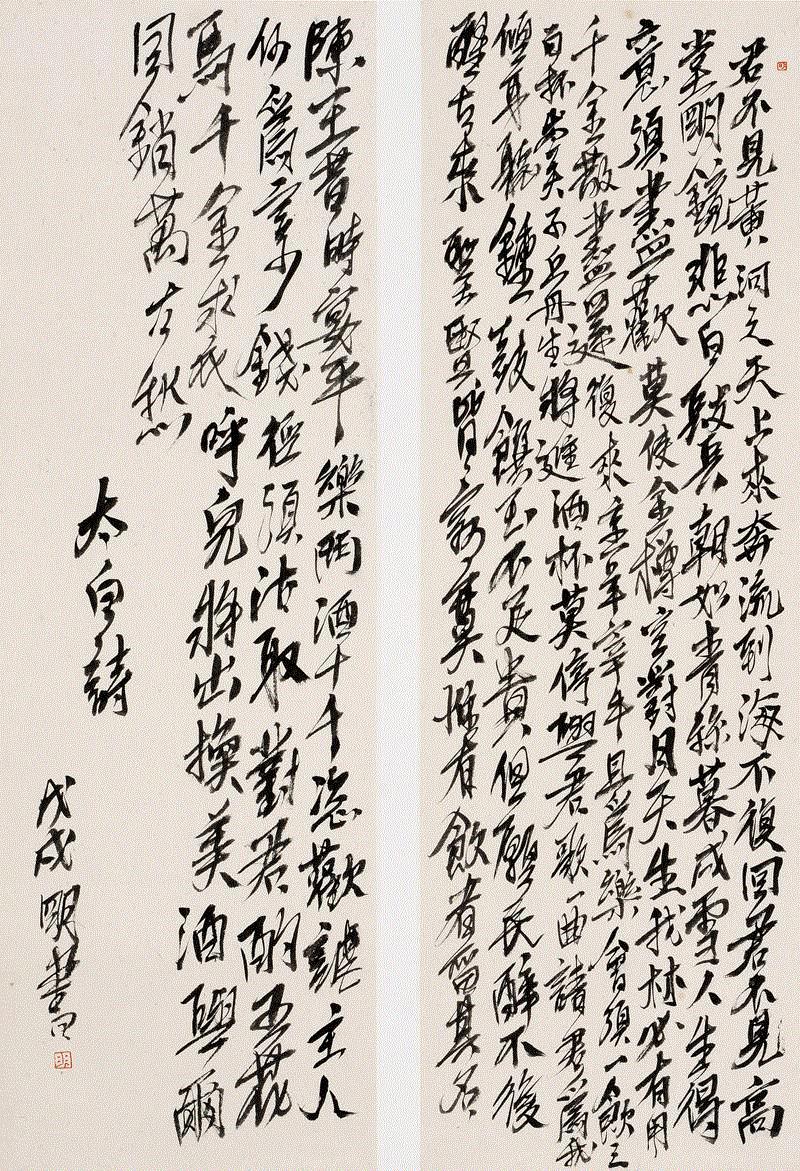 君不見黃河之天上來奔流到海不復回君不見高
堂明鏡悲白髮朝如青絲暮成雪人生得
意須盡歡莫使金樽空對月天生我材必有用
千金散盡還復來烹羊宰牛且爲樂會須一飲三
百杯岑夫子丘丹生將進酒杯莫停與君歌一曲請君爲我
傾耳聽鐘鼓饌玉不足貴但願長醉不復
醒古來聖賢皆寂寞惟有飲者留其名
陳王昔時宴平樂鬥酒十千恣歡謔主人
何爲言少錢徑須沽取對君酌五花
馬千金裘呼兒將出換美酒與爾
同銷萬古愁
太白詩
戊戌明書
明